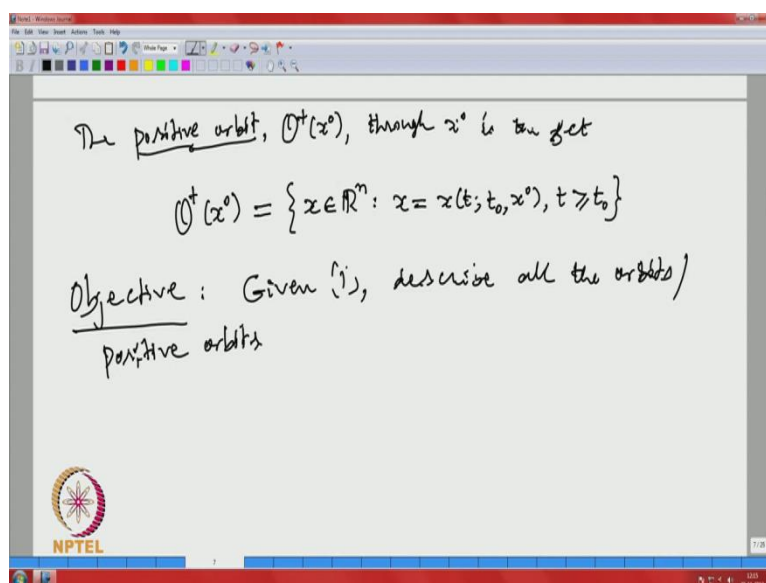 Note1 - Windows Journal
File Edit View Insert Actions Tools Help
Whole Page
B I
The positive orbit, O⁺(x⁰), through x⁰ is the set
O⁺(x⁰) = {x ∈ ℝⁿ : x = x(t; t₀, x⁰), t ≥ t₀}
Objective : Given (1), describe all the orbits/
positive orbits
NPTEL
7
7/28